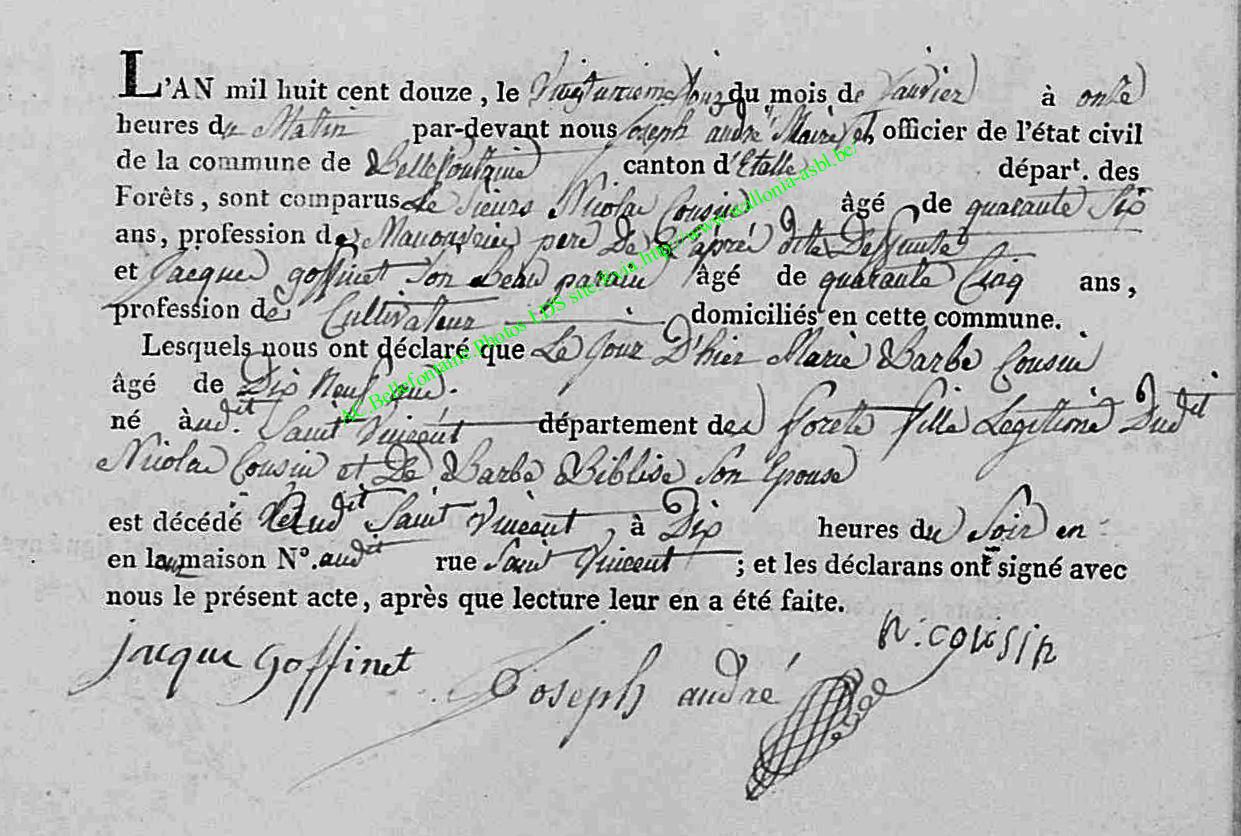 L'AN mil huit cent douze, le Vingt unieme Jour du mois de Janvier à onze
heures du Matin par-devant nous Joseph andré Maire et officier de l'état civil
de la commune de Bellefontaine canton d'Etalle départ. des
Forêts, sont comparus Le Sieurs Nicolas Cousin âgé de quarante Six
ans, profession de Manouvrier pere De L'après dite Deffunte
et Jacque goffinet Son Beau parain âgé de quarante Cinq ans,
profession de Cultivateur domiciliés en cette commune.
Lesquels nous ont déclaré que Le Jour D'hier Marie Barbe Cousin
âgé de Dix Neuf ans.
né à udit Saint Vincent département des forets fille Legitime Dudit
Nicolas Cousin et De Barbe Biblise Son Epouse
est décédé Audit Saint Vincent à Dix heures du Soir en
en la maison N°. audit rue Saint Vincent ; et les déclarans ont signé avec
nous le présent acte, après que lecture leur en a été faite.
jacque goffinet Joseph andré n. cousin
AC Bellefontaine Photos LDS site via http://www.wallonia-asbl.be/